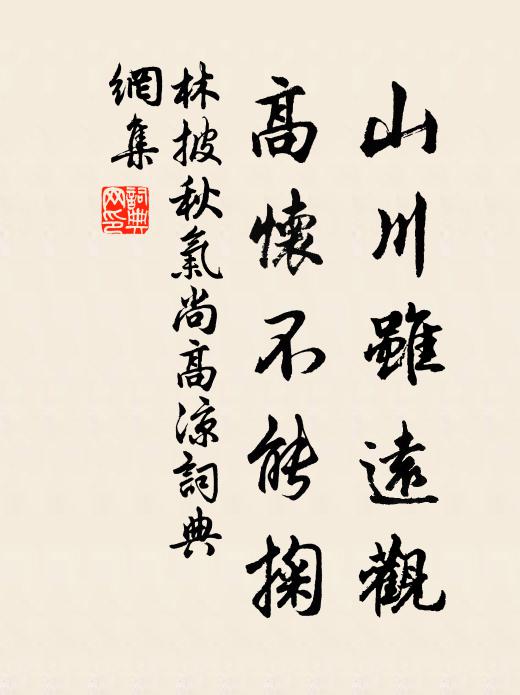 山川雖遠觀
高懷不能掬
林披秋氣尚高涼詞典
網集
詞典網印